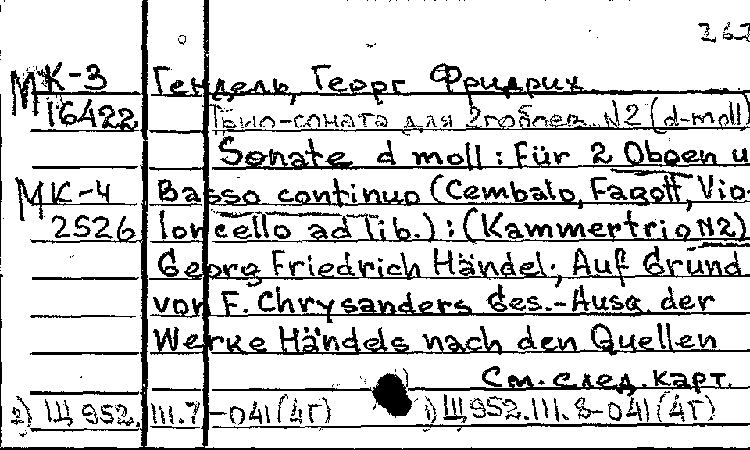 262
МК-3 Гендель, Георг Фридрих
16422 Трио-соната для 2 гобоев. N2 (d-moll)
Sonate d moll : Für 2 Oboen u
МК-4 Basso continuo (Cembalo, Fagott, Vio
2526 loncello ad lib.) : (Kammertrio N2)
Georg Friedrich Händel; Auf Grund
von F. Chrysanders Ges.-Ausg. der
Werke Händels nach den Quellen
См. след. карт.
2) Щ 952.III.7-041(4Г) 1) Щ 952.III.8-041(4Г)